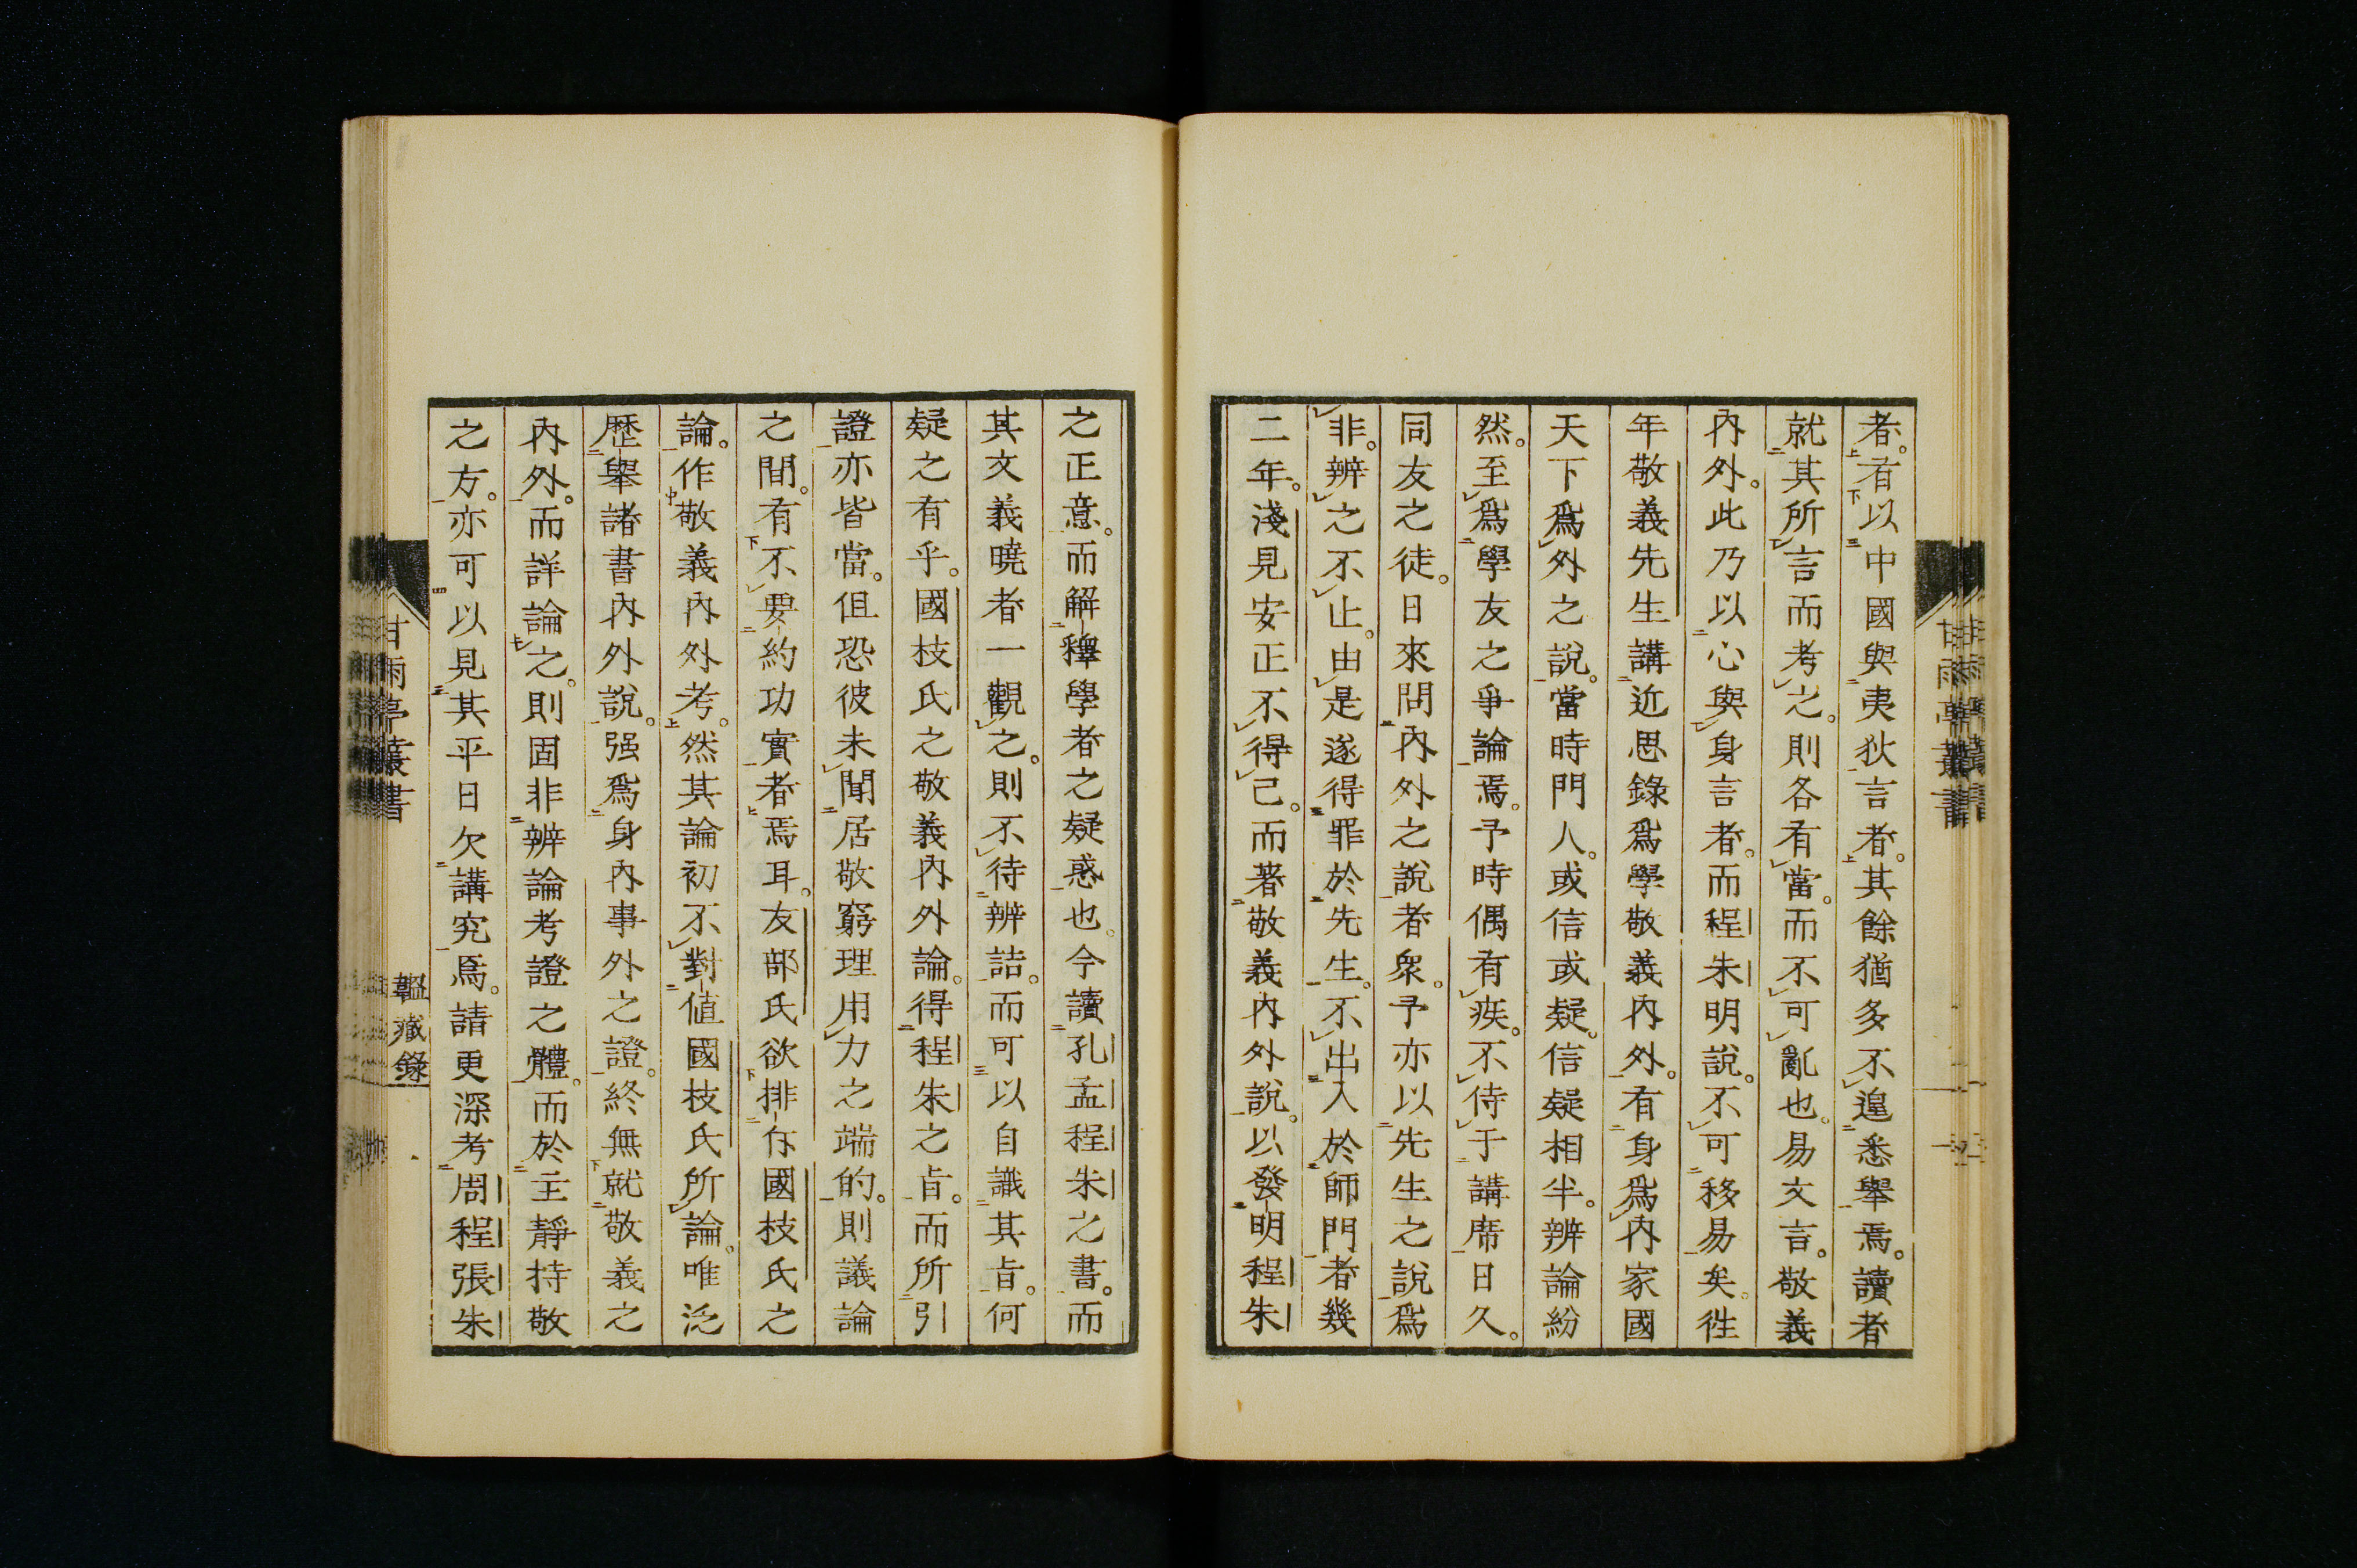 者。有以中國與夷狄言者。其餘猶多不遑悉舉焉。讀者
就其所言而考之。則各有當。而不可亂也。易文言。敬義
內外。此乃以心與身言者。而程朱明說。不可移易矣。徃
年敬義先生講近思錄爲學敬義內外。有身爲內家國
天下爲外之說。當時門人。或信或疑。信疑相半。辨論紛
然。至爲學友之爭論焉。予時偶有疾。不待于講席日久。
同友之徒。日來問內外之說者衆。予亦以先生之說爲
非。辨之不止。由是遂得罪於先生。不出入於師門者幾
二年。淺見安正不得已。而著敬義內外說。以發明程朱
之正意。而解釋學者之疑惑也。今讀孔孟程朱之書。而
其文義曉者一觀之。則不待辨詰。而可以自識其旨。何
疑之有乎。國枝氏之敬義內外論。得程朱之旨。而所引
證亦皆當。但恐彼未聞居敬窮理用力之端的。則議論
之間。有不要約功實者焉耳。友部氏欲排斥國枝氏之
論。作敬義內外考。然其論初不對值國枝氏所論。唯泛
歷舉諸書內外說。强爲身內事外之證。終無就敬義之
內外。而詳論之。則固非辨論考證之體。而於主靜持敬
之方。亦可以見其平日欠講究焉。請更深考周程張朱
甘雨亭叢書
韞藏錄